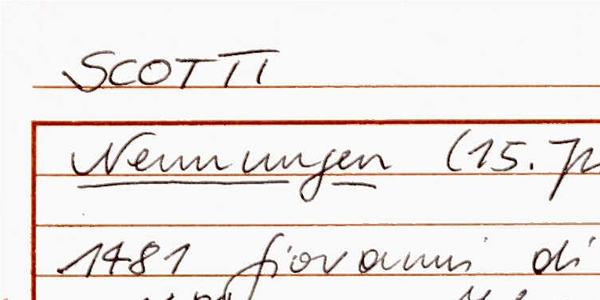 SCOTTI
Nennungen (15. Jh
1481 Giovanni di